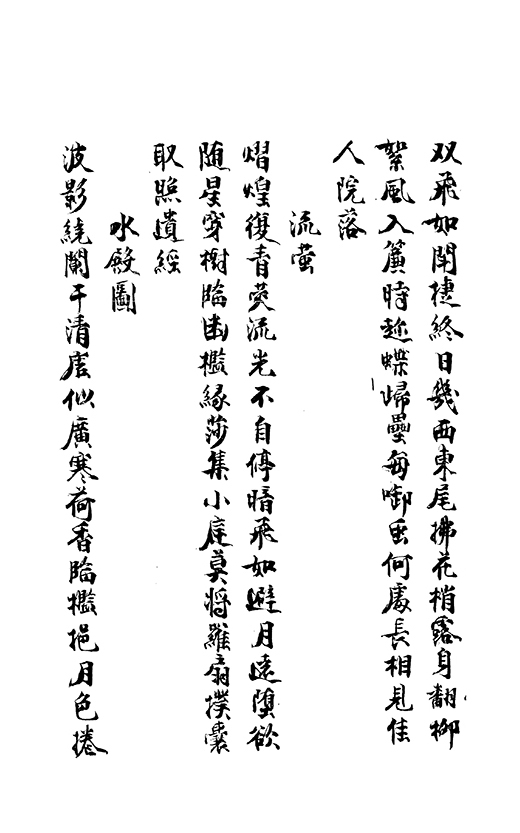 双飛如閗捷終日幾西東尾拂花梢露身翻柳
絮風入簾時趂蝶歸壘每啣虫何處長相見佳
人院落
流萤
熠煌復青熒流光不自停暗飛如避月遠墮欲
随星穿樹臨幽檻緣莎集小庭莫将羅扇撲囊
取照遺經
水殿圖
波影繞闌干清虛似廣寒荷香臨檻挹月色捲